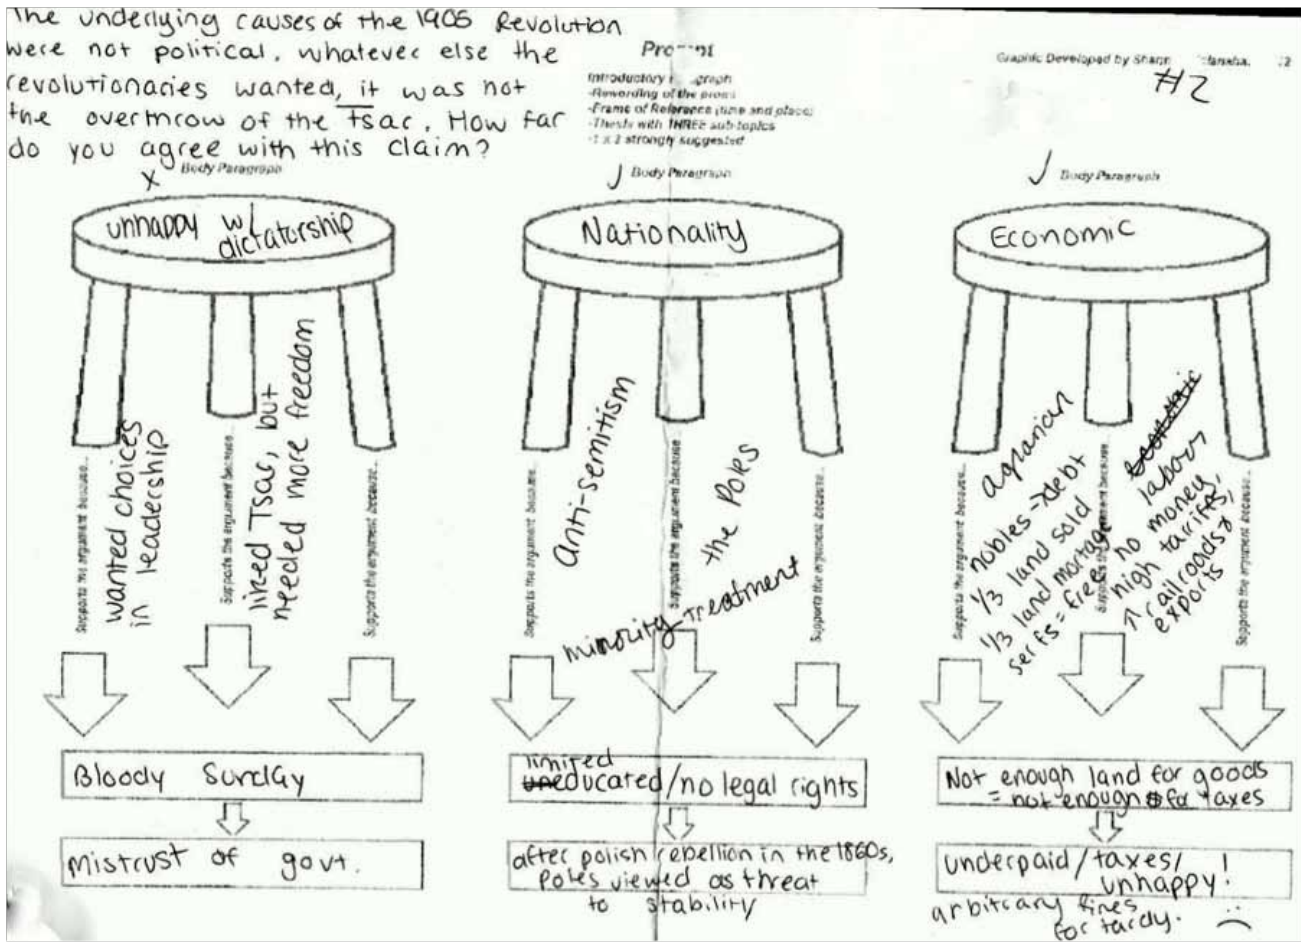 The underlying causes of the 1905 Revolution
were not political. whatever else the
revolutionaries wanted, it was not
the overthrow of the Tsar. How far
do you agree with this claim?
Introductory
-Rewording of the
-Frame of Reference (time and place)
-Thesis with THREE sub-topics
-1 x 2 strongly suggested
Graphic Developed by
#2
x Body Paragraph
unhappy w/
dictatorship
Supports the argument because...
wanted choices
in leadership
Supports the argument because...
liked Tsar, but
needed more freedom
Supports the argument because...
Bloody Sunday
Mistrust of govt.
Body Paragraph
Nationality
Supports the argument because...
Anti-semitism
Supports the argument because...
the Poles
minority treatment
Supports the argument because...
limited
uneducated/no legal rights
after polish rebellion in the 1860s,
Poles viewed as threat
to stability
Body Paragraph
Economic
Supports the argument because...
agrarian
nobles → debt
1/3 land sold
1/3 land mortage
serfs = free
Supports the argument because...
economic
labour
no money,
high tarrifs,
↑ railroads &
exports
Supports the argument because...
Not enough land for goods
= not enough for taxes
underpaid/taxes/
unhappy!
arbitrary fines
for tardy.